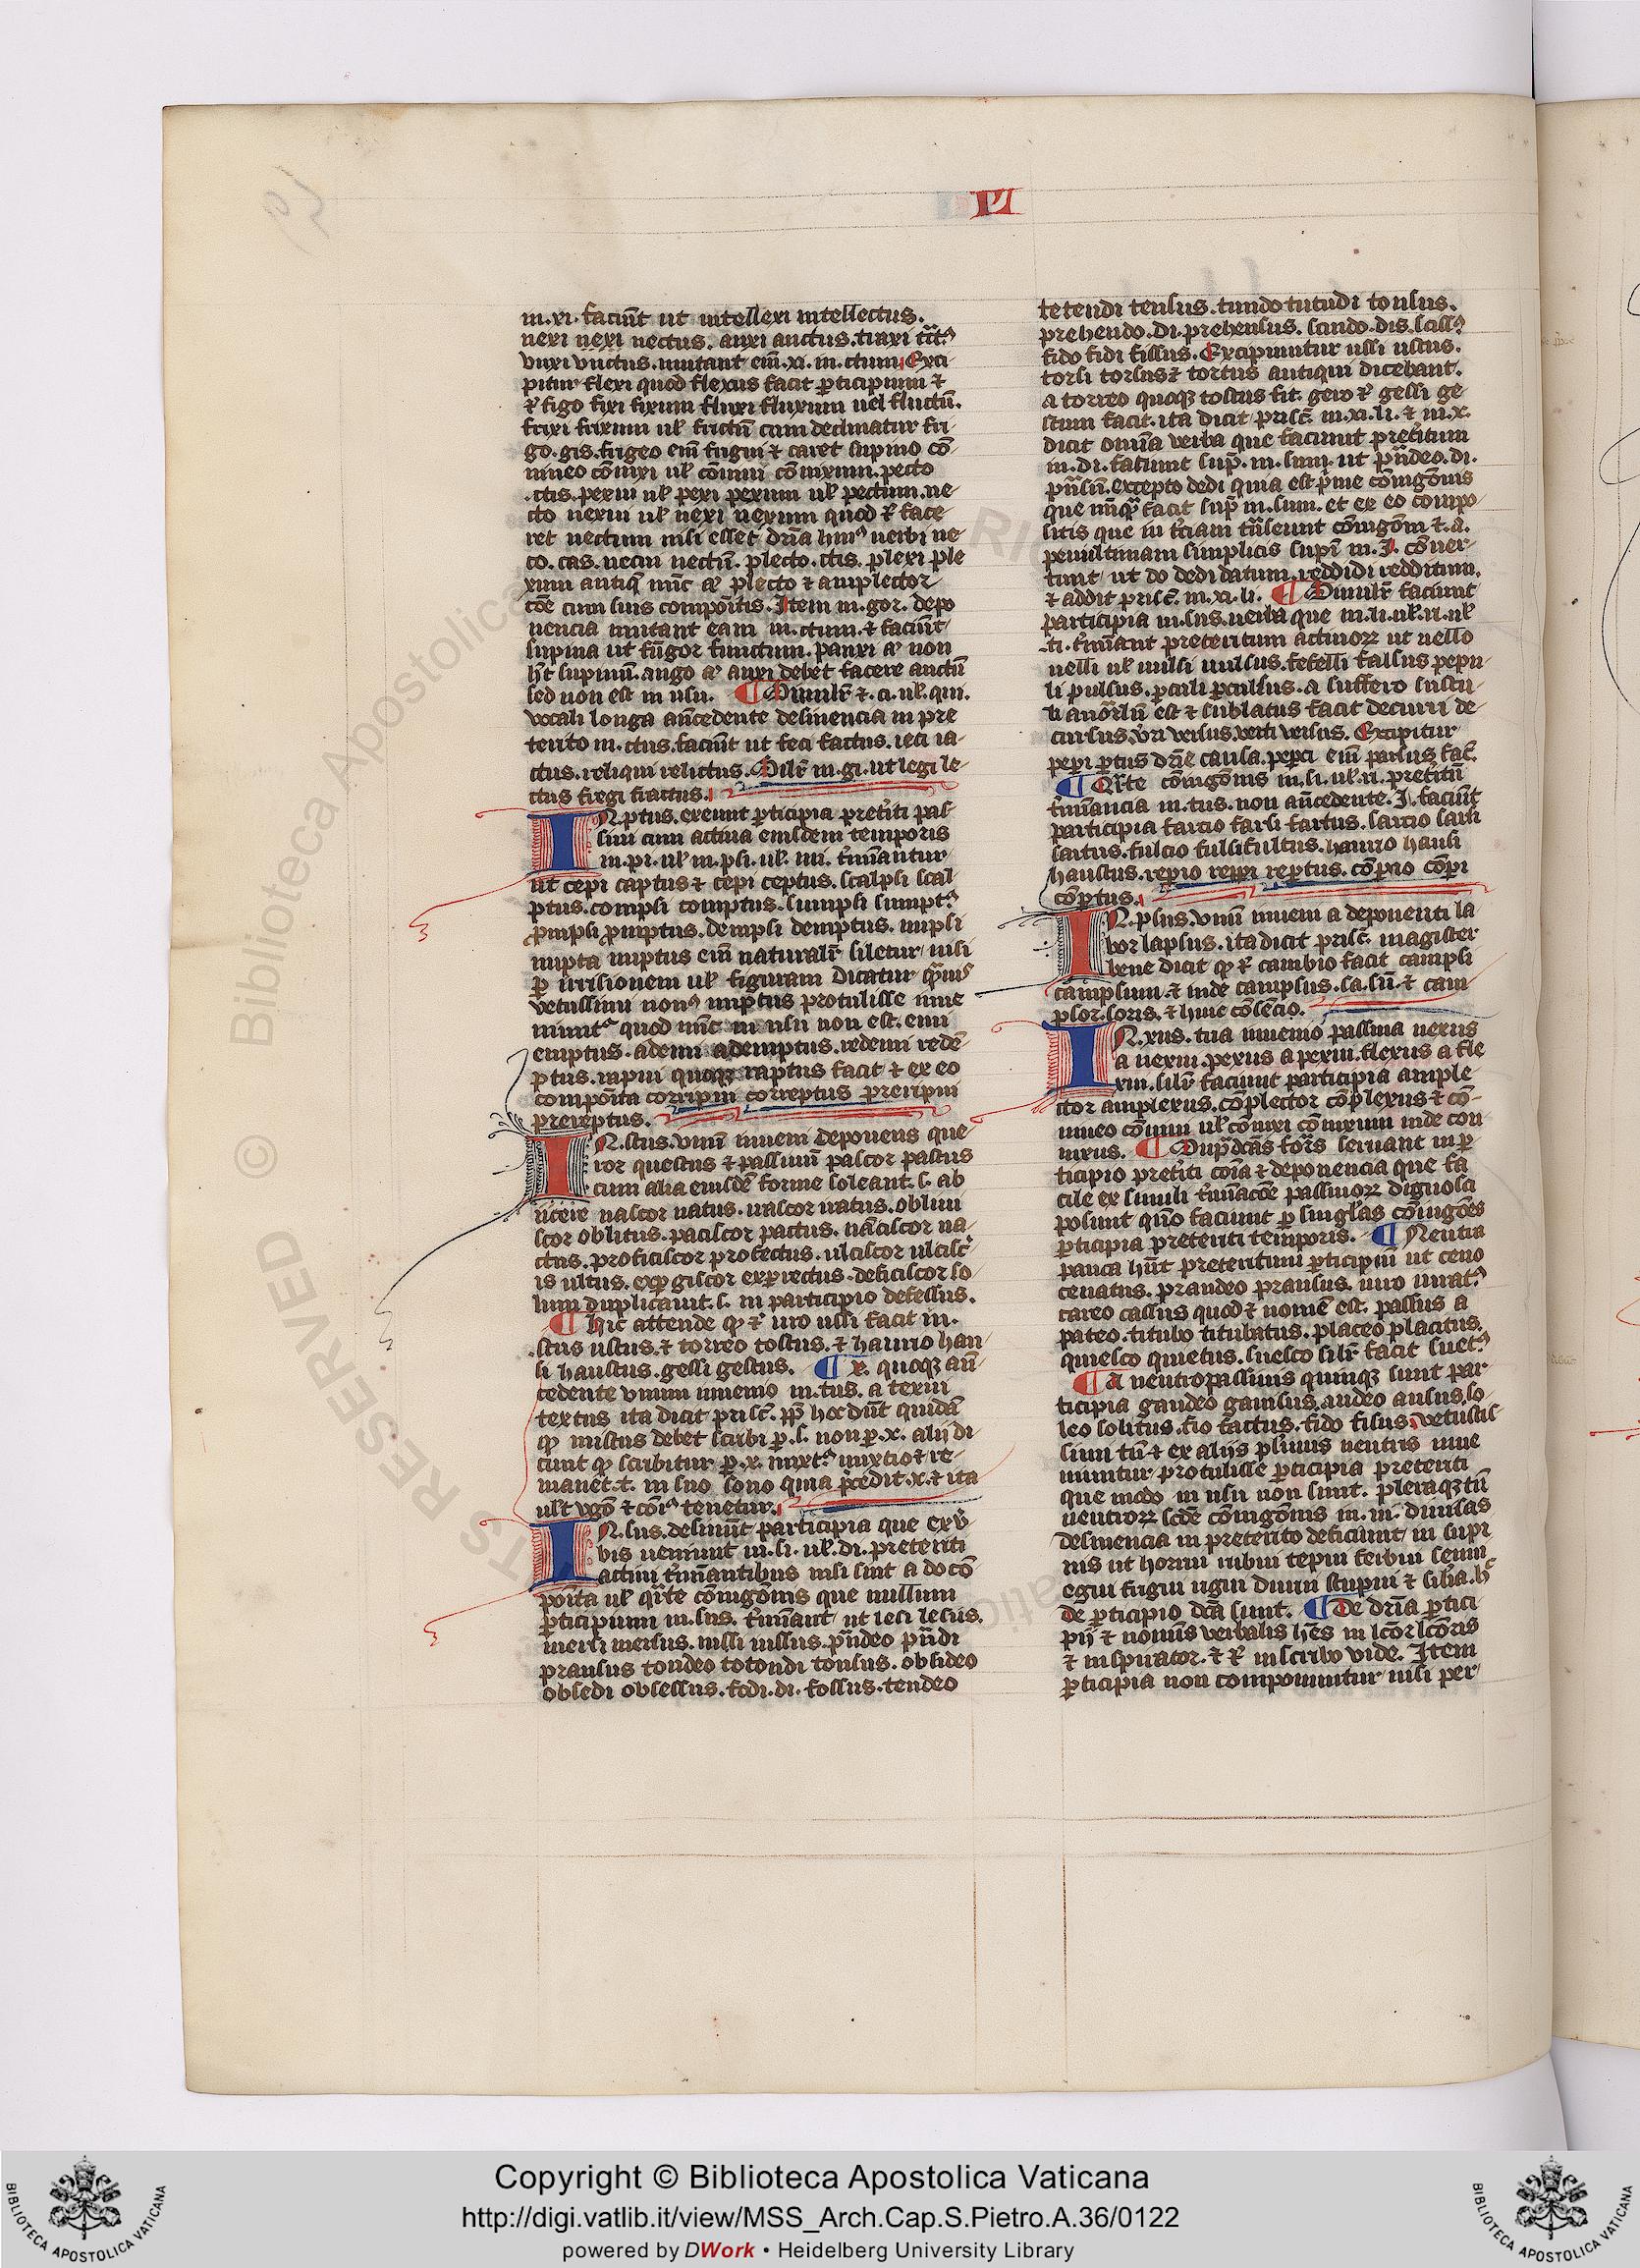 P
in.xi. faciūt ut intellexi intellectus.
nexi nexi nectus. auxi auctus. traxi
vnxi vnctus. mutant em̄. xi. in. ctum. Exci
pitur flexi quod flexus facit ꝑticipium ⁊
figo fixi fixum fluxi fluxum uel fluctū.
frixi frixum ul̓ frictū cum declinatur fri
go. gis. frigeo em̄ frigui ⁊ caret supino cō
niueo cōnixi ul̓ cōniui cōnixum. pecto
.ctis. pexui ul̓ pexi pexum ul̓ pectum. ne
cto nexui ul̓ nexi nexum quod face
ret nectum nisi esset dr̄ia uerbi ne
co. cas. necui nectū. plecto. ctis. plexi ple
xum antiq̄ nūc plecto ⁊ amplector
cum suis compōitis. Item in. gor. depo
nencia mutant eam in. ctum. ⁊ faciūt
supina ut fūgor functum. panxi non
hūt supinū. ango auxi debet facere anctū
sed non est in usu. ¶ Similr̄ ⁊. ci. ul̓. qui.
vocali longa an̄cedente desinencia in pre
terito in. ctus. faciūt ut feci factus. ieci ia
ctus. reliqui relictus. Silr̄ in. gi. ut legi le
ctus fregi fractus.
IN. ptus. exeunt ꝑticipia pret̓iti pas
siui cum actiua eiusdem temporis
in. pi. ul̓ in. psi. ul̓. mi. t̓mīantur
ut cepi captus ⁊ cepi ceptus. scalpsi scal
ptus. compsi comptus. sumpsi
promptus. dempsi demptus. nupsi
nupta nuptus em̄ naturalr̄ siletur nisi
ꝑ irrisionem ul̓ figuram dicatur
vetustissimi nuptus protulisse inue
quod nūc in usu non est. emi
emptus. ademi ademptus. redemi redē
ptus. rapui quoqꝫ raptus facit ⁊ ex eo
compōita corripui correptus preripui
prereptus.
IN. stus. vnū inueni deponens que
ror questus ⁊ passiuū pascor pastus
cum alia eiusdē forme soleant. s. ab
iicere nascor natus. uascor uatus. obliui
scor oblitus. paciscor pactus. nāciscor na
ctus. proficiscor profectus. ulciscor ulcisc̓
is ultus. exꝑgiscor exꝑrectus. defetiscor so
lum duplicauit. s. in participio defessus.
¶ Hic attende uro ussi facit in.
stus ustus. ⁊ torreo tostus. ⁊ haurio hau
si haustus. gessi gestus. ¶ x. quoqꝫ an̄
cedente vnum inuenio in. tus. a texui
textus ita dicit prisc̄. hoc dūt quidā
mistus debet scribi ꝑ. s. non ꝑ. x. alij di
cunt scribitur. ꝑ. x. mixtio ⁊ re
manet. t. in suo sono quia p̓cedit. x. ⁊ ita
ult vgō ⁊ tenetur.
IN. sus. desinūt participia que ex
bis ueniunt in. si. ul̓. di. preteriti
actiui t̓mīantibus nisi sint a do cō
pōita ul̓ q̄rte cōiugōnis que nullum
ꝑticipium in. sus. t̓mīant ut lesi lesus.
mersi mersus. iussi iussus. pn̄deo pn̄di
pransus tondeo totondi tonsus. obsideo
obsedi obsessus. fodi. di. fossus. tendeo
tetendi tensus. tundo tutudi tonsus.
prehendo. di. prehensus. scindo. dis.
fido fidi fissus. Excipiuntur ussi ustus.
torsi torsus ⁊ tortus antiqui dicebant.
a torreo quoqꝫ tostus fit. gero gessi ge
stum facit. ita dicit prisc̄. in. xi. li. ⁊ in. x.
dicit omīa verba que faciunt pret̓itum
in. di. faciunt sup̄. in. sum. ut pn̄deo. di.
excepto dedi quia est p̓me cōiugōnis
que nūq̄ facit sup̄ in. sum. et ex eo compo
sitis que in t̓ciam trāseunt cōiugōem ⁊. a.
penultimam simplicis supī in. I. conuer
tunt ut do dedi datum. reddidi redditum.
⁊ addit prisc̄. in. xi. li. ¶ Similr̄ faciunt
participia in. sus. uerba que in. li. ul̓. ri. ul̓
.ti. t̓mīant preteritum actiuorꝝ ut uello
uelli ul̓ uulsi uulsus. fefelli falsus pepu
li pulsus. ꝑculi ꝑculsus. a suffero sustu
li est ⁊ sublatus facit decurri de
cursus. verri versus. verti versus. Excipitur
peꝑi ꝑtus dr̄ie causa. peꝑci em̄ parsus fac̄.
¶ Q̄rte cōiugōnis in. si. ul̓. ri. pret̓itū
t̓mīancia in. tus. non an̄cedente. I. faciūt
participia farcio farsi fartus. sarcio sarsi
sartus. fulcio fulsi fultus. haurio hausi
haustus. reperio repperi repertus. cōperio cōperi
cōpertus.
IN. psus. vnū inueni a deponenti la
bor lapsus. ita dicit prisc̄. magister
bene dicit cambio facit campsi
campsum. ⁊ inde campsus. sa. sū. ⁊ cam
psor. soris. ⁊ huic cōsencio.
IN. xus. tria inuenio passiua nexus
a nexui. pexus a pexui. flexus a fle
xui. silr̄ faciunt participia ample
ctor amplexus. cōplector cōplexus ⁊ cō
niueo cōniui ul̓ cōnixi cōnixum inde con
nixus. ¶ Supradc̄as seruant in ꝑ
ticipio pret̓iti cōia ⁊ deponencia que fa
cile ex simili t̓mīacōe passiuorꝝ dignosci
possunt quō faciunt ꝑ singlas cōiugōes
ꝑticipia preteriti temporis. ¶ Neutra
pauca hn̄t preteritum ꝑticipiū ut ceno
cenatus. prandeo pransus. iuro
careo cassus quod ⁊ nomē est. passus a
pateo. titubo titubatus. placeo placitus.
quiesco quietus. suesco silr̄ facit
¶ A neutropassiuis quinqꝫ sunt par
ticipia gaudeo gauisus. audeo ausus. so
leo solitus. fio factus. fido fisus. vetustis
simi tn̄ ⁊ ex alijs pluribus neutris inue
niuntur protulisse ꝑticipia preteriti
que modo in usu non sunt. pleraqꝫ tn̄
neutrorꝝ scd̄e cōiugōnis in. ui. diuisas
desinencia in preterito deficiunt in supi
nis ut horrui rubui tepui ferbui senui
egui frigui rigui dirrui stupui ⁊ silia.
de ꝑticipio dc̄a sunt. ¶ De dr̄ia ꝑtici
pij ⁊ nominis verbalis hēs in lcōr lcōris
⁊ in spirator. ⁊ in scribo vide. Item
ꝑticipia non componuntur nisi per
Copyright © Biblioteca Apostolica Vaticana
http://digi.vatlib.it/view/MSS_Arch.Cap.S.Pietro.A.36/0122
powered by DWork • Heidelberg University Library
BIBLIOTECA APOSTOLICA VATICANA
BIBLIOTECA APOSTOLICA VATICANA